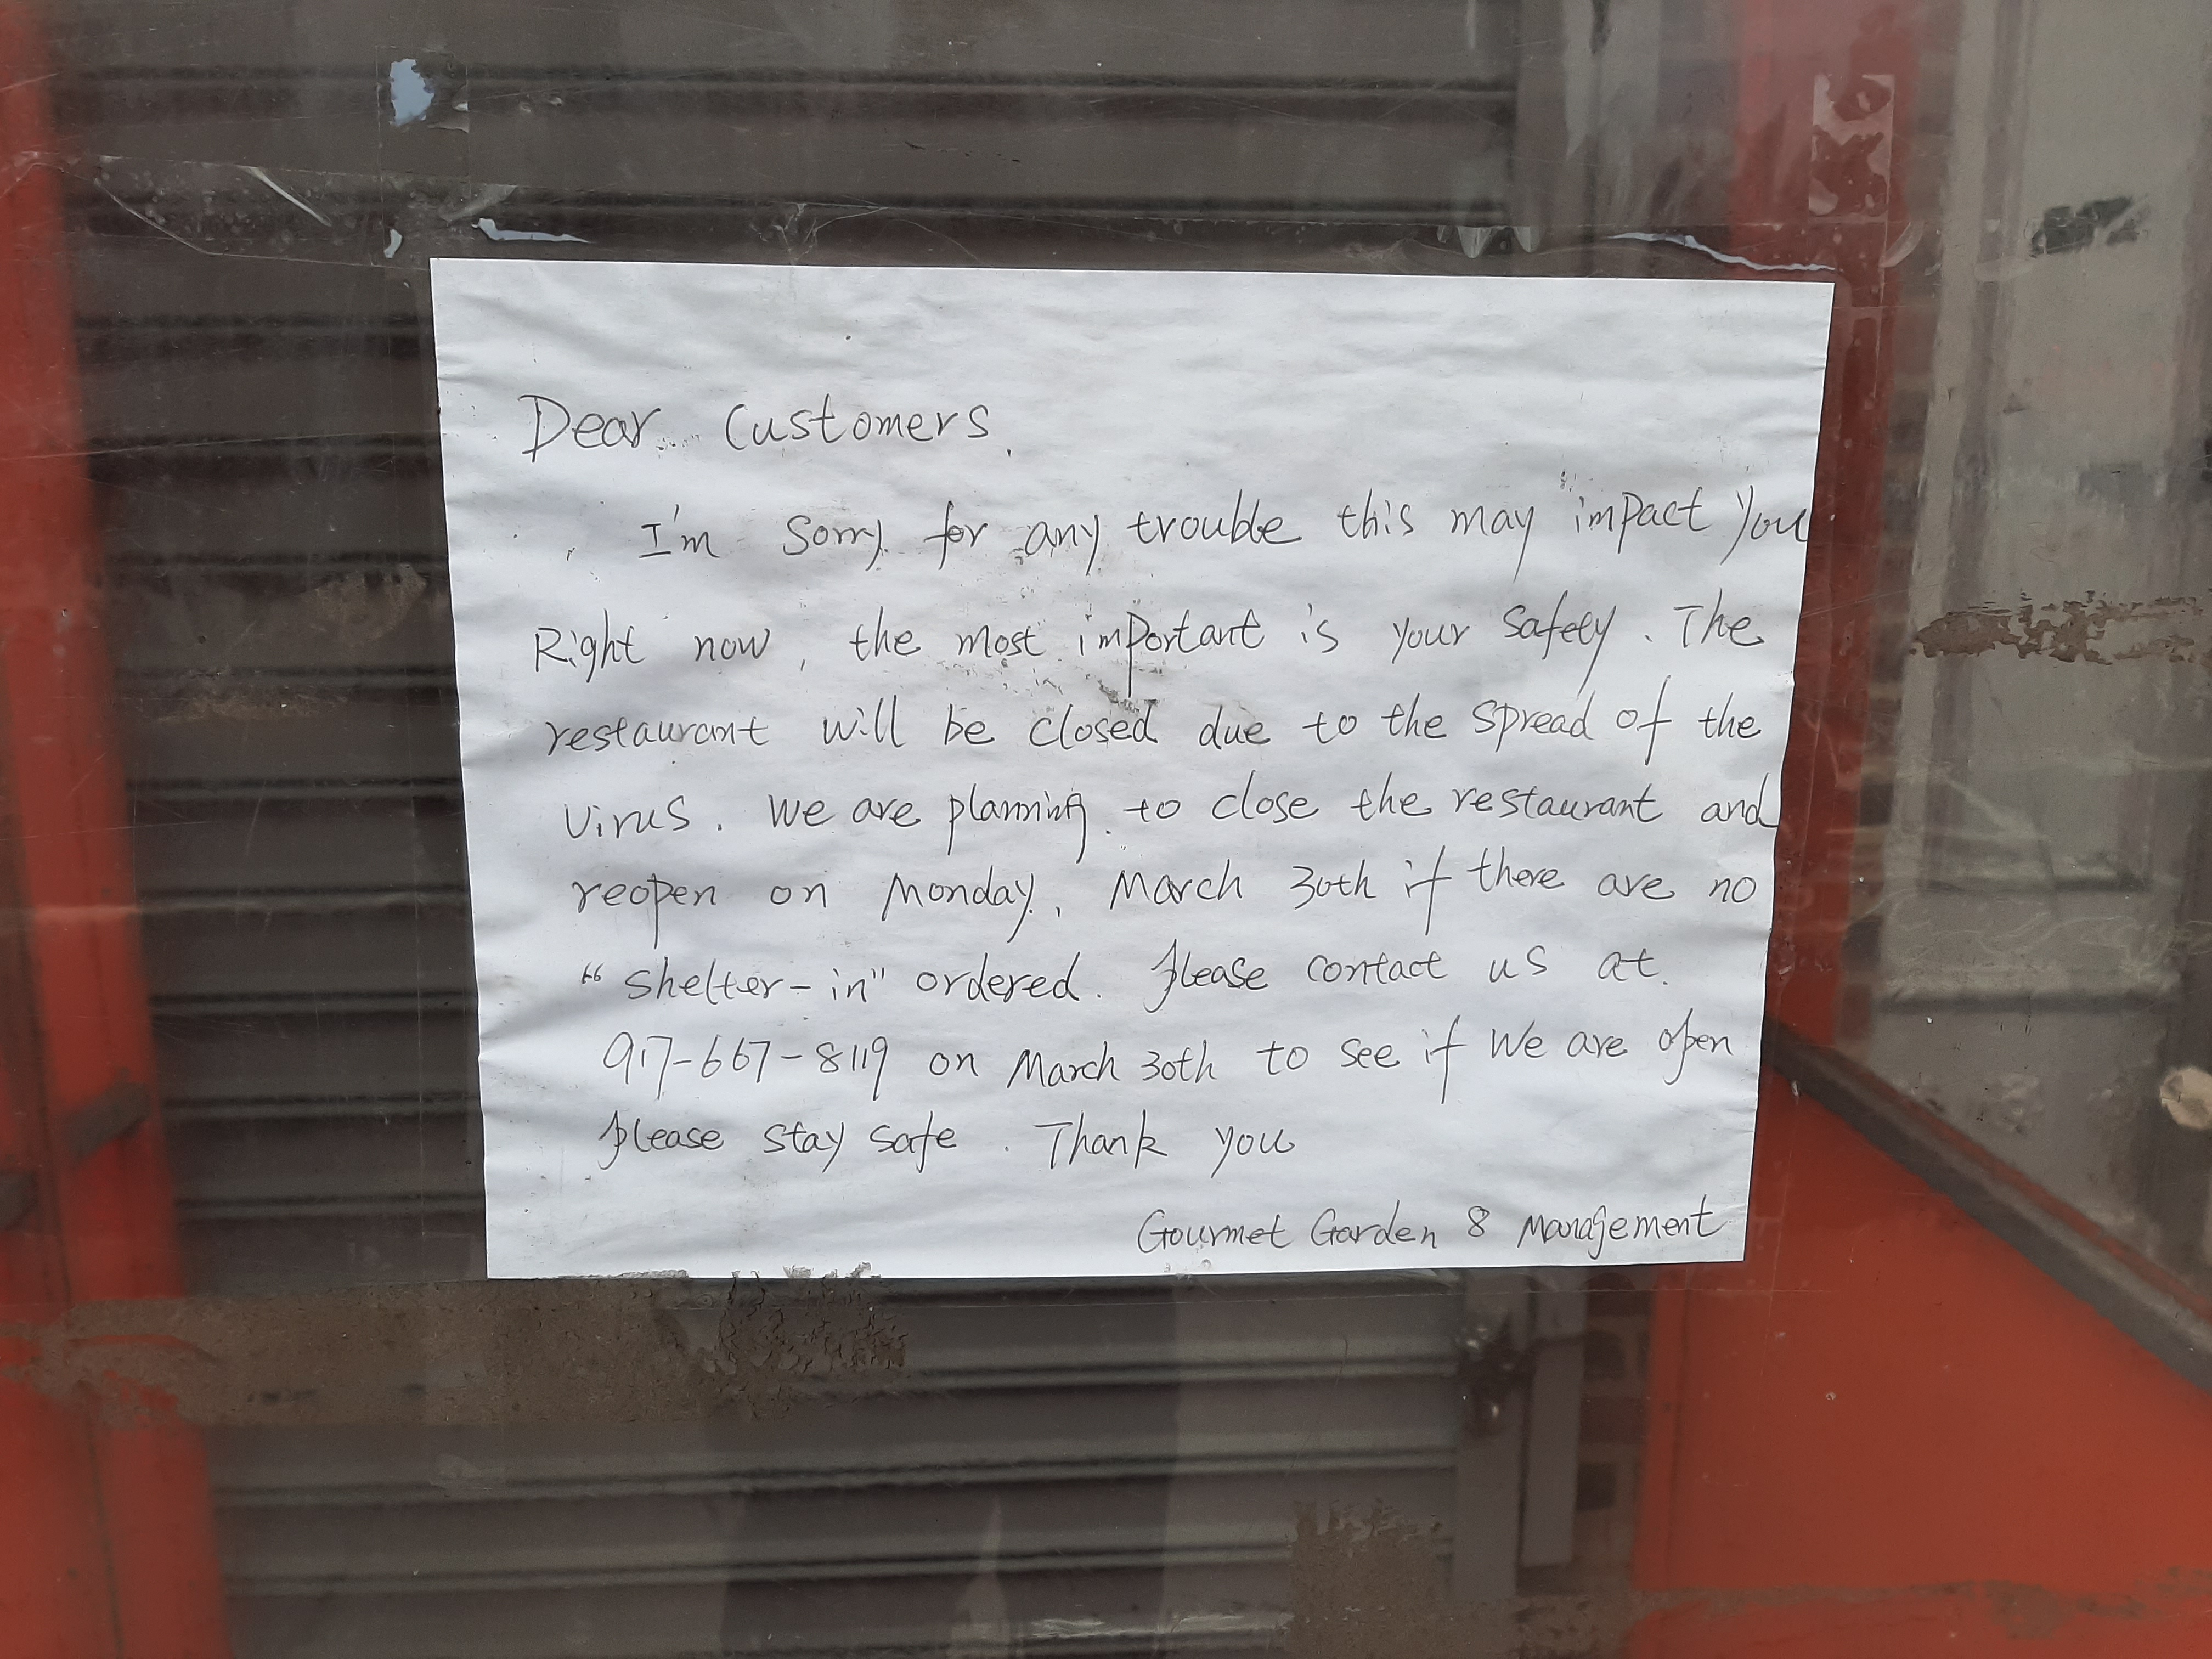 Dear Customers,
I'm sorry for any trouble this may impact you
Right now, the most important is your safety. The
restaurant will be closed due to the spread of the
virus. We are planning to close the restaurant and
reopen on Monday, March 30th if there are no
"shelter-in" ordered. Please contact us at.
917-667-8119 on March 30th to see if we are open
Please stay safe. Thank you
Gourmet Garden 8 Management